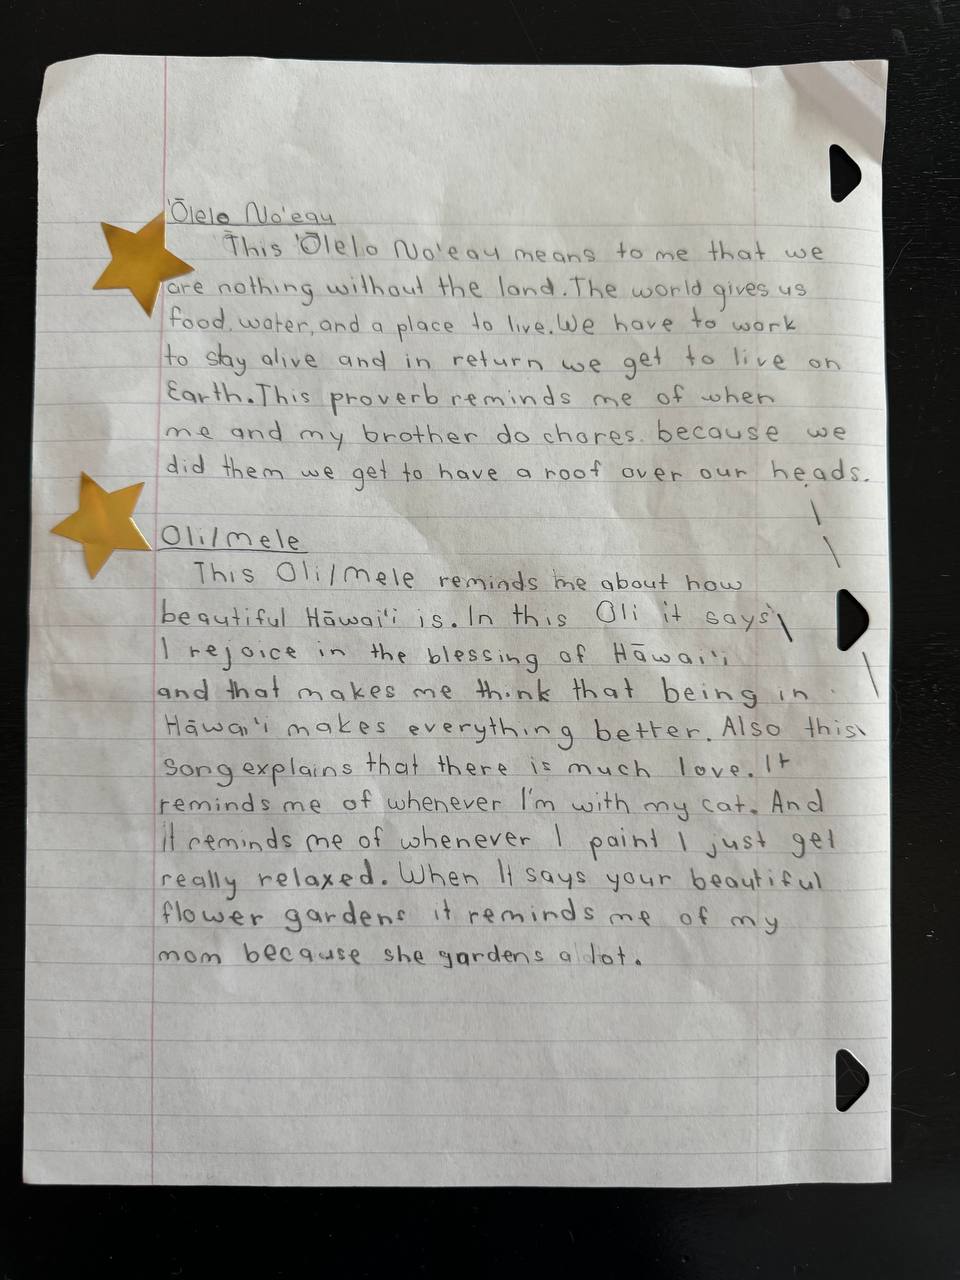 'Ōlelo No'eau
This 'Ōlelo No'eau means to me that we
are nothing without the land. The world gives us
food, water, and a place to live. We have to work
to stay alive and in return we get to live on
Earth. This proverb reminds me of when
me and my brother do chores. because we
did them we get to have a roof over our heads.
Oli/mele
This Oli/mele reminds me about how
beautiful Hāwai'i is. In this Oli it says
I rejoice in the blessing of Hāwai'i
and that makes me think that being in
Hāwai'i makes everything better. Also this
song explains that there is much love. It
reminds me of whenever I'm with my cat. And
it reminds me of whenever I paint I just get
really relaxed. When It says your beautiful
flower gardens it reminds me of my
mom because she gardens a lot.